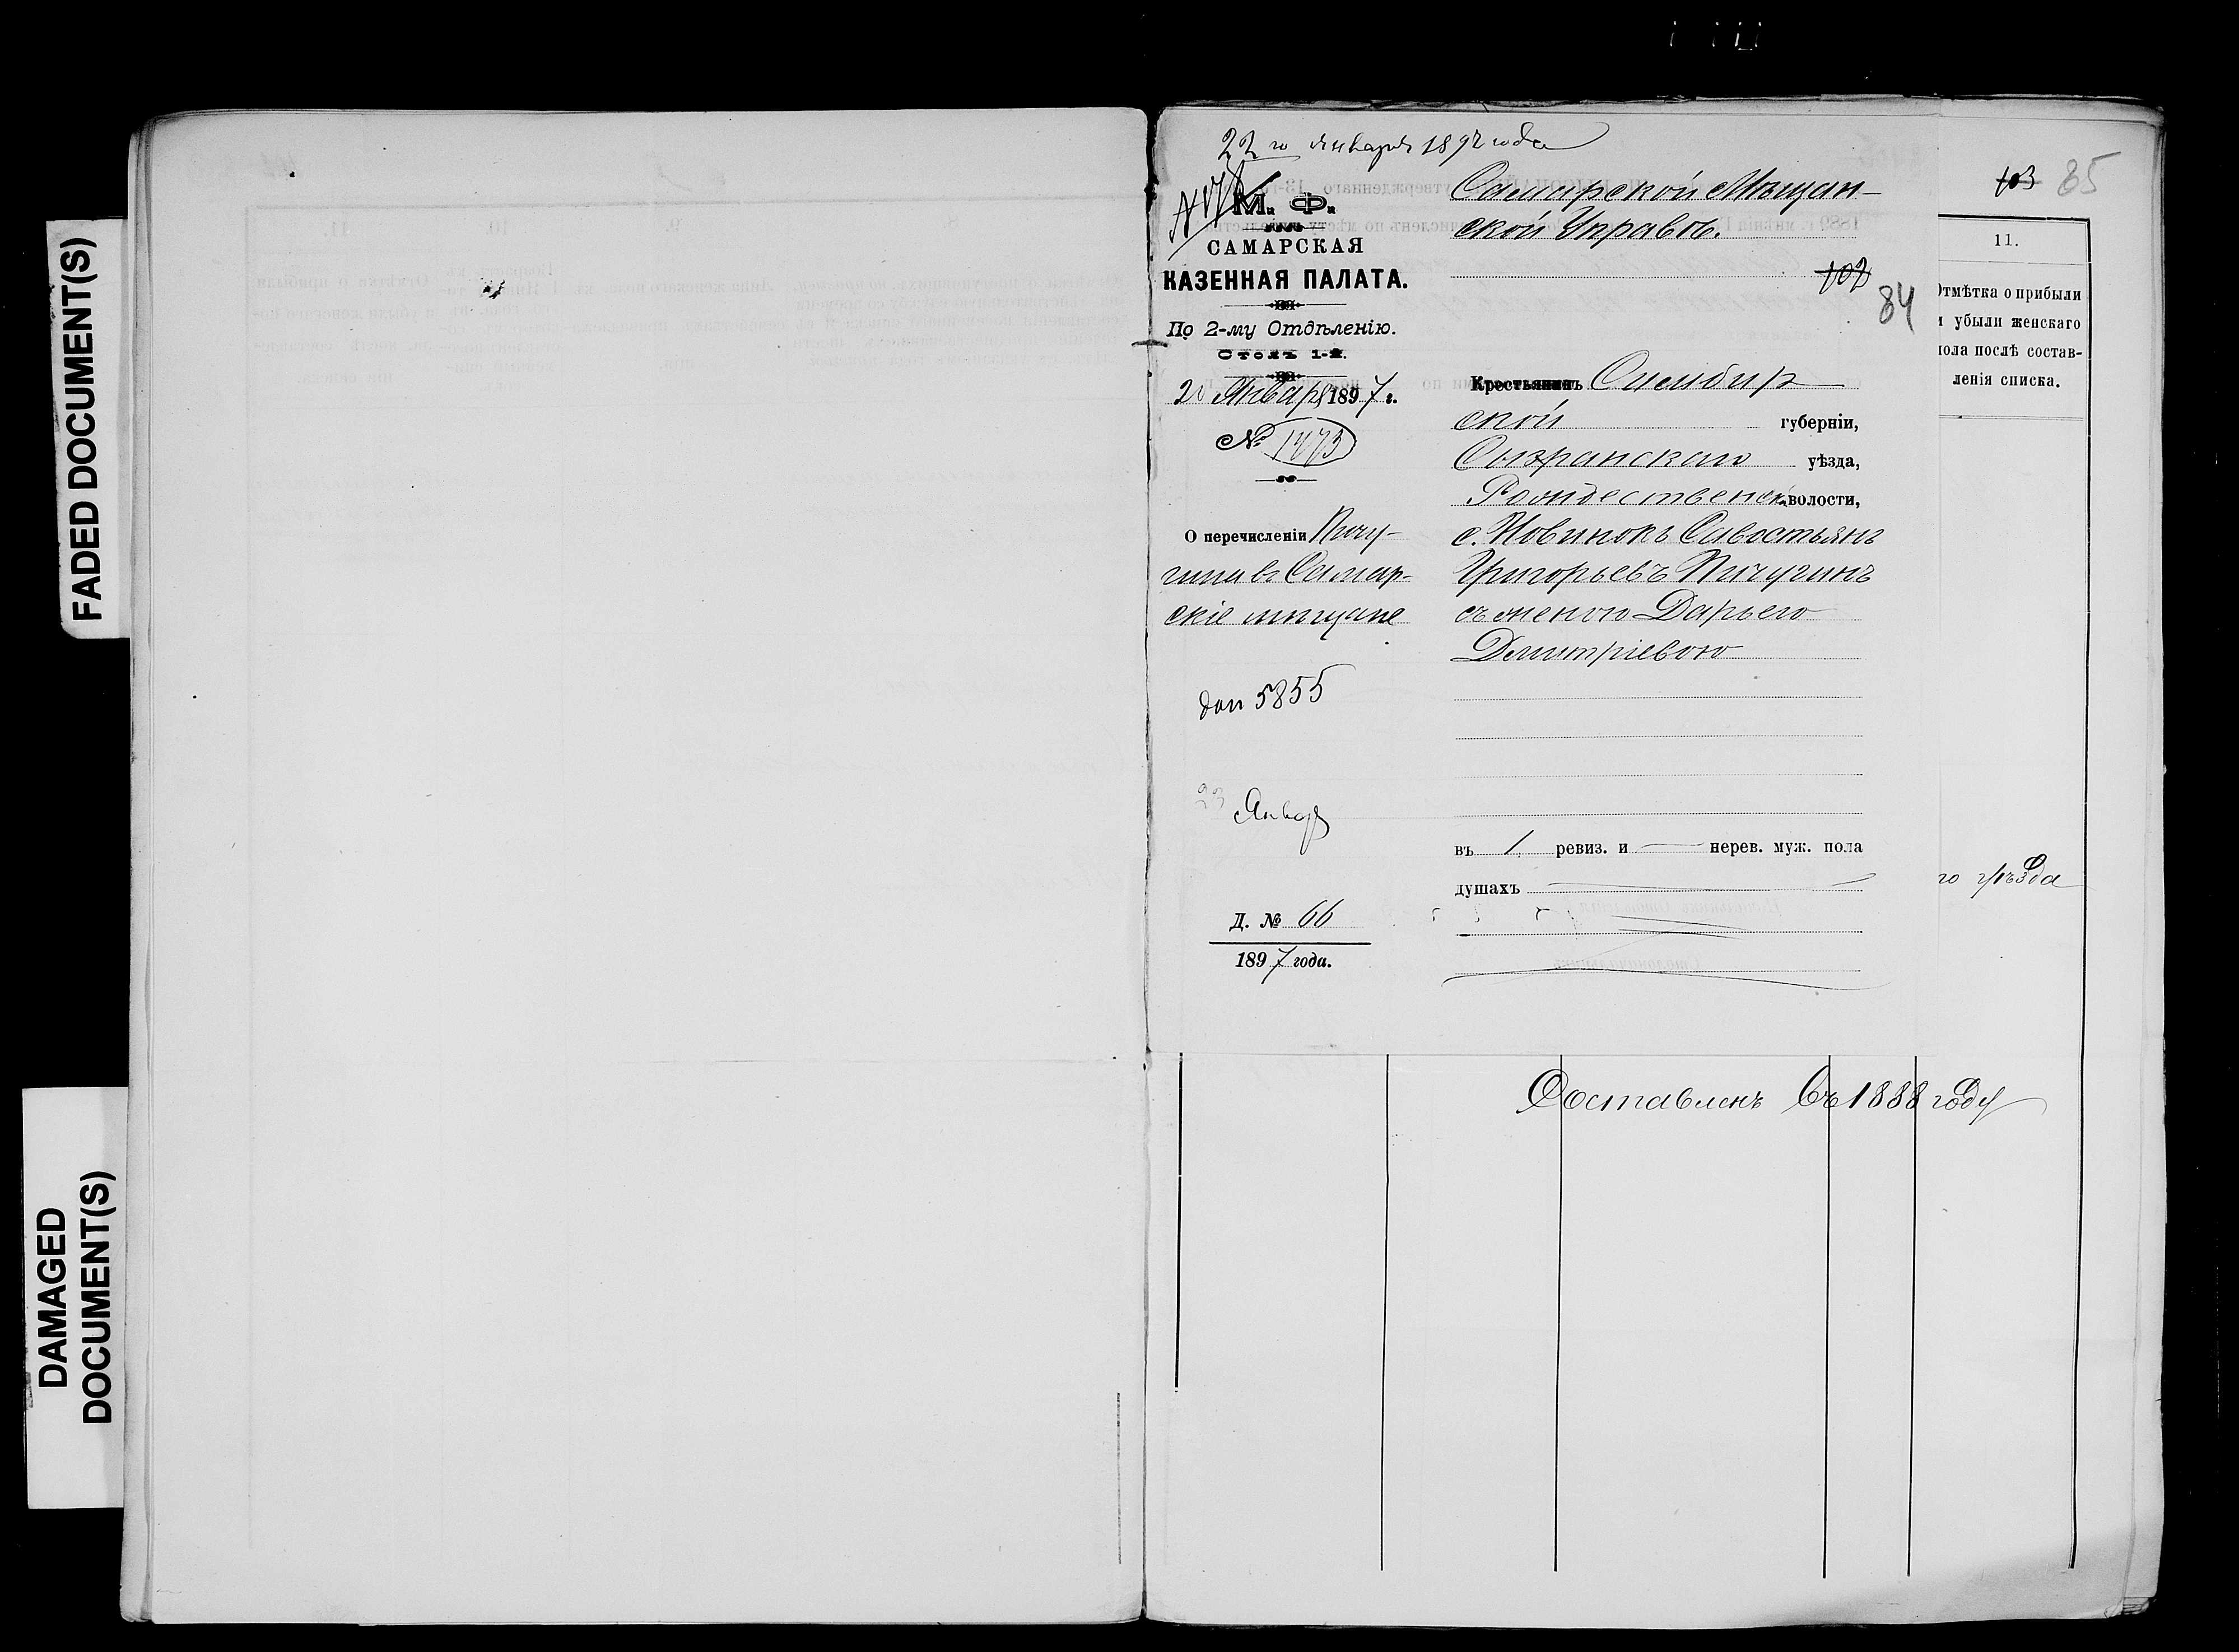 FADED DOCUMENT(S)
DAMAGED
DOCUMENT(S)
22го января 1897 года
М. Ф.
САМАРСКАЯ
КАЗЕННАЯ ПАЛАТА.
По 2-му Отдѣленію.
Столъ 1-й.
20 Января 1897 г.
№ 1473
О перечисленіи Пичу-
гина въ Самар-
скіе мѣщане
доп 5855
23 Январ
Д. № 66
1897 года.
Самарской Мѣщан-
ской Управѣ.
102
84
Крестьянинъ Симбир
ской губерніи,
Сызранскаго уѣзда,
Рождественск. волости,
с. Новинокъ Савостьянъ
Григорьевъ Пичугинъ
съ женою Дарьею
Дмитріевою
въ 1 ревиз. и — нерев. муж. пола
душахъ
103 85
11.
Отмѣтка о прибыли
и убыли женскаго
пола послѣ состав-
ленія списка.
го уѣзда
Составленъ въ 1888 году